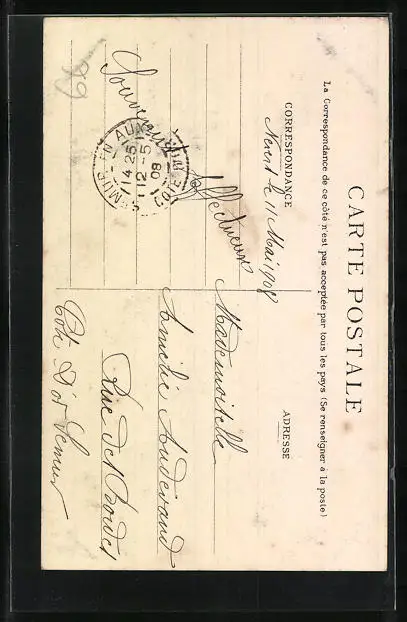 CARTE POSTALE
La Correspondance de ce côté n'est pas acceptée par tous les pays (Se renseigner à la poste)
CORRESPONDANCE
ADRESSE
Nevers le 11 Mai 1908
affectueux
Souvenir
SEMUR EN AUXOIS
14 25
12-5
08
COTE D'OR
Mademoiselle
Amélie
Rue de
Côte d'or Semur